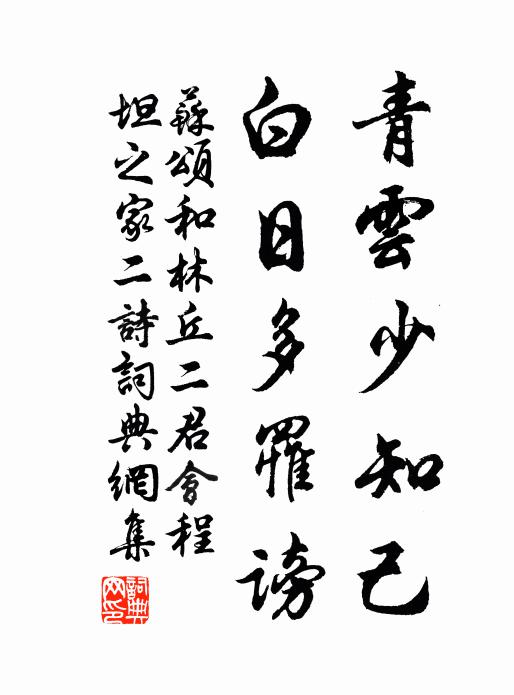 青雲少知己
白日多罹謗
蘇頌和林丘二君會程
坦之家二詩詞典網集
詞典網印